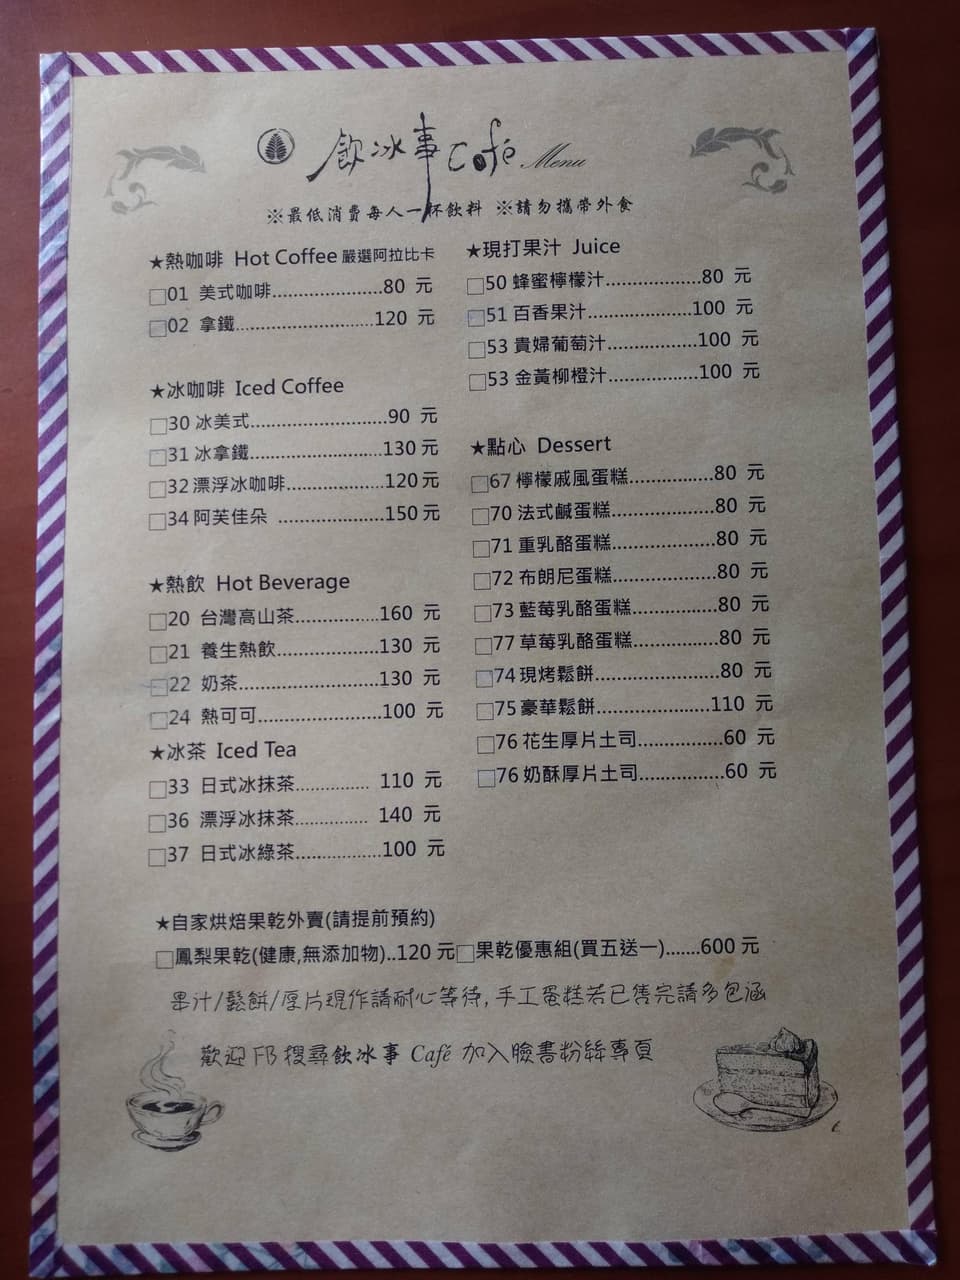 飲冰事 Café Menu
※最低消費每人一杯飲料 ※請勿攜帶外食
★熱咖啡 Hot Coffee 嚴選阿拉比卡
□01 美式咖啡....................80 元
□02 拿鐵.........................120 元
★冰咖啡 Iced Coffee
□30 冰美式.........................90 元
□31 冰拿鐵........................130 元
□32 漂浮冰咖啡..................120 元
□34 阿芙佳朵 ...................150 元
★熱飲 Hot Beverage
□20 台灣高山茶...............160 元
□21 養生熱飲...................130 元
□22 奶茶.........................130 元
□24 熱可可......................100 元
★冰茶 Iced Tea
□33 日式冰抹茶............... 110 元
□36 漂浮冰抹茶............... 140 元
□37 日式冰綠茶................100 元
★現打果汁 Juice
□50 蜂蜜檸檬汁.................80 元
□51 百香果汁...................100 元
□53 貴婦葡萄汁................100 元
□53 金黃柳橙汁................100 元
★點心 Dessert
□67 檸檬戚風蛋糕...............80 元
□70 法式鹹蛋糕...................80 元
□71 重乳酪蛋糕...................80 元
□72 布朗尼蛋糕...................80 元
□73 藍莓乳酪蛋糕...............80 元
□77 草莓乳酪蛋糕...............80 元
□74 現烤鬆餅......................80 元
□75 豪華鬆餅....................110 元
□76 花生厚片土司...............60 元
□76 奶酥厚片土司...............60 元
★自家烘焙果乾外賣(請提前預約)
□鳳梨果乾(健康,無添加物)..120 元□果乾優惠組(買五送一).......600 元
果汁/鬆餅/厚片現作請耐心等待,手工蛋糕若已售完請多包涵
歡迎 FB 搜尋飲冰事 Café 加入臉書粉絲專頁